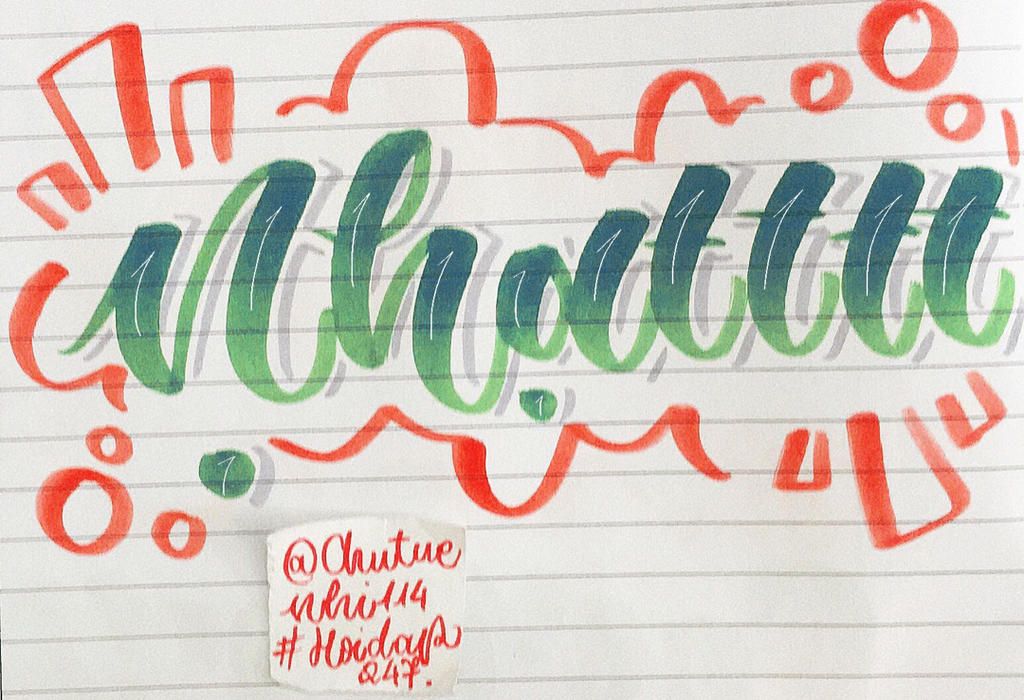 Nhạtttt
@Chutue
nhi114
#Hoidap
247.